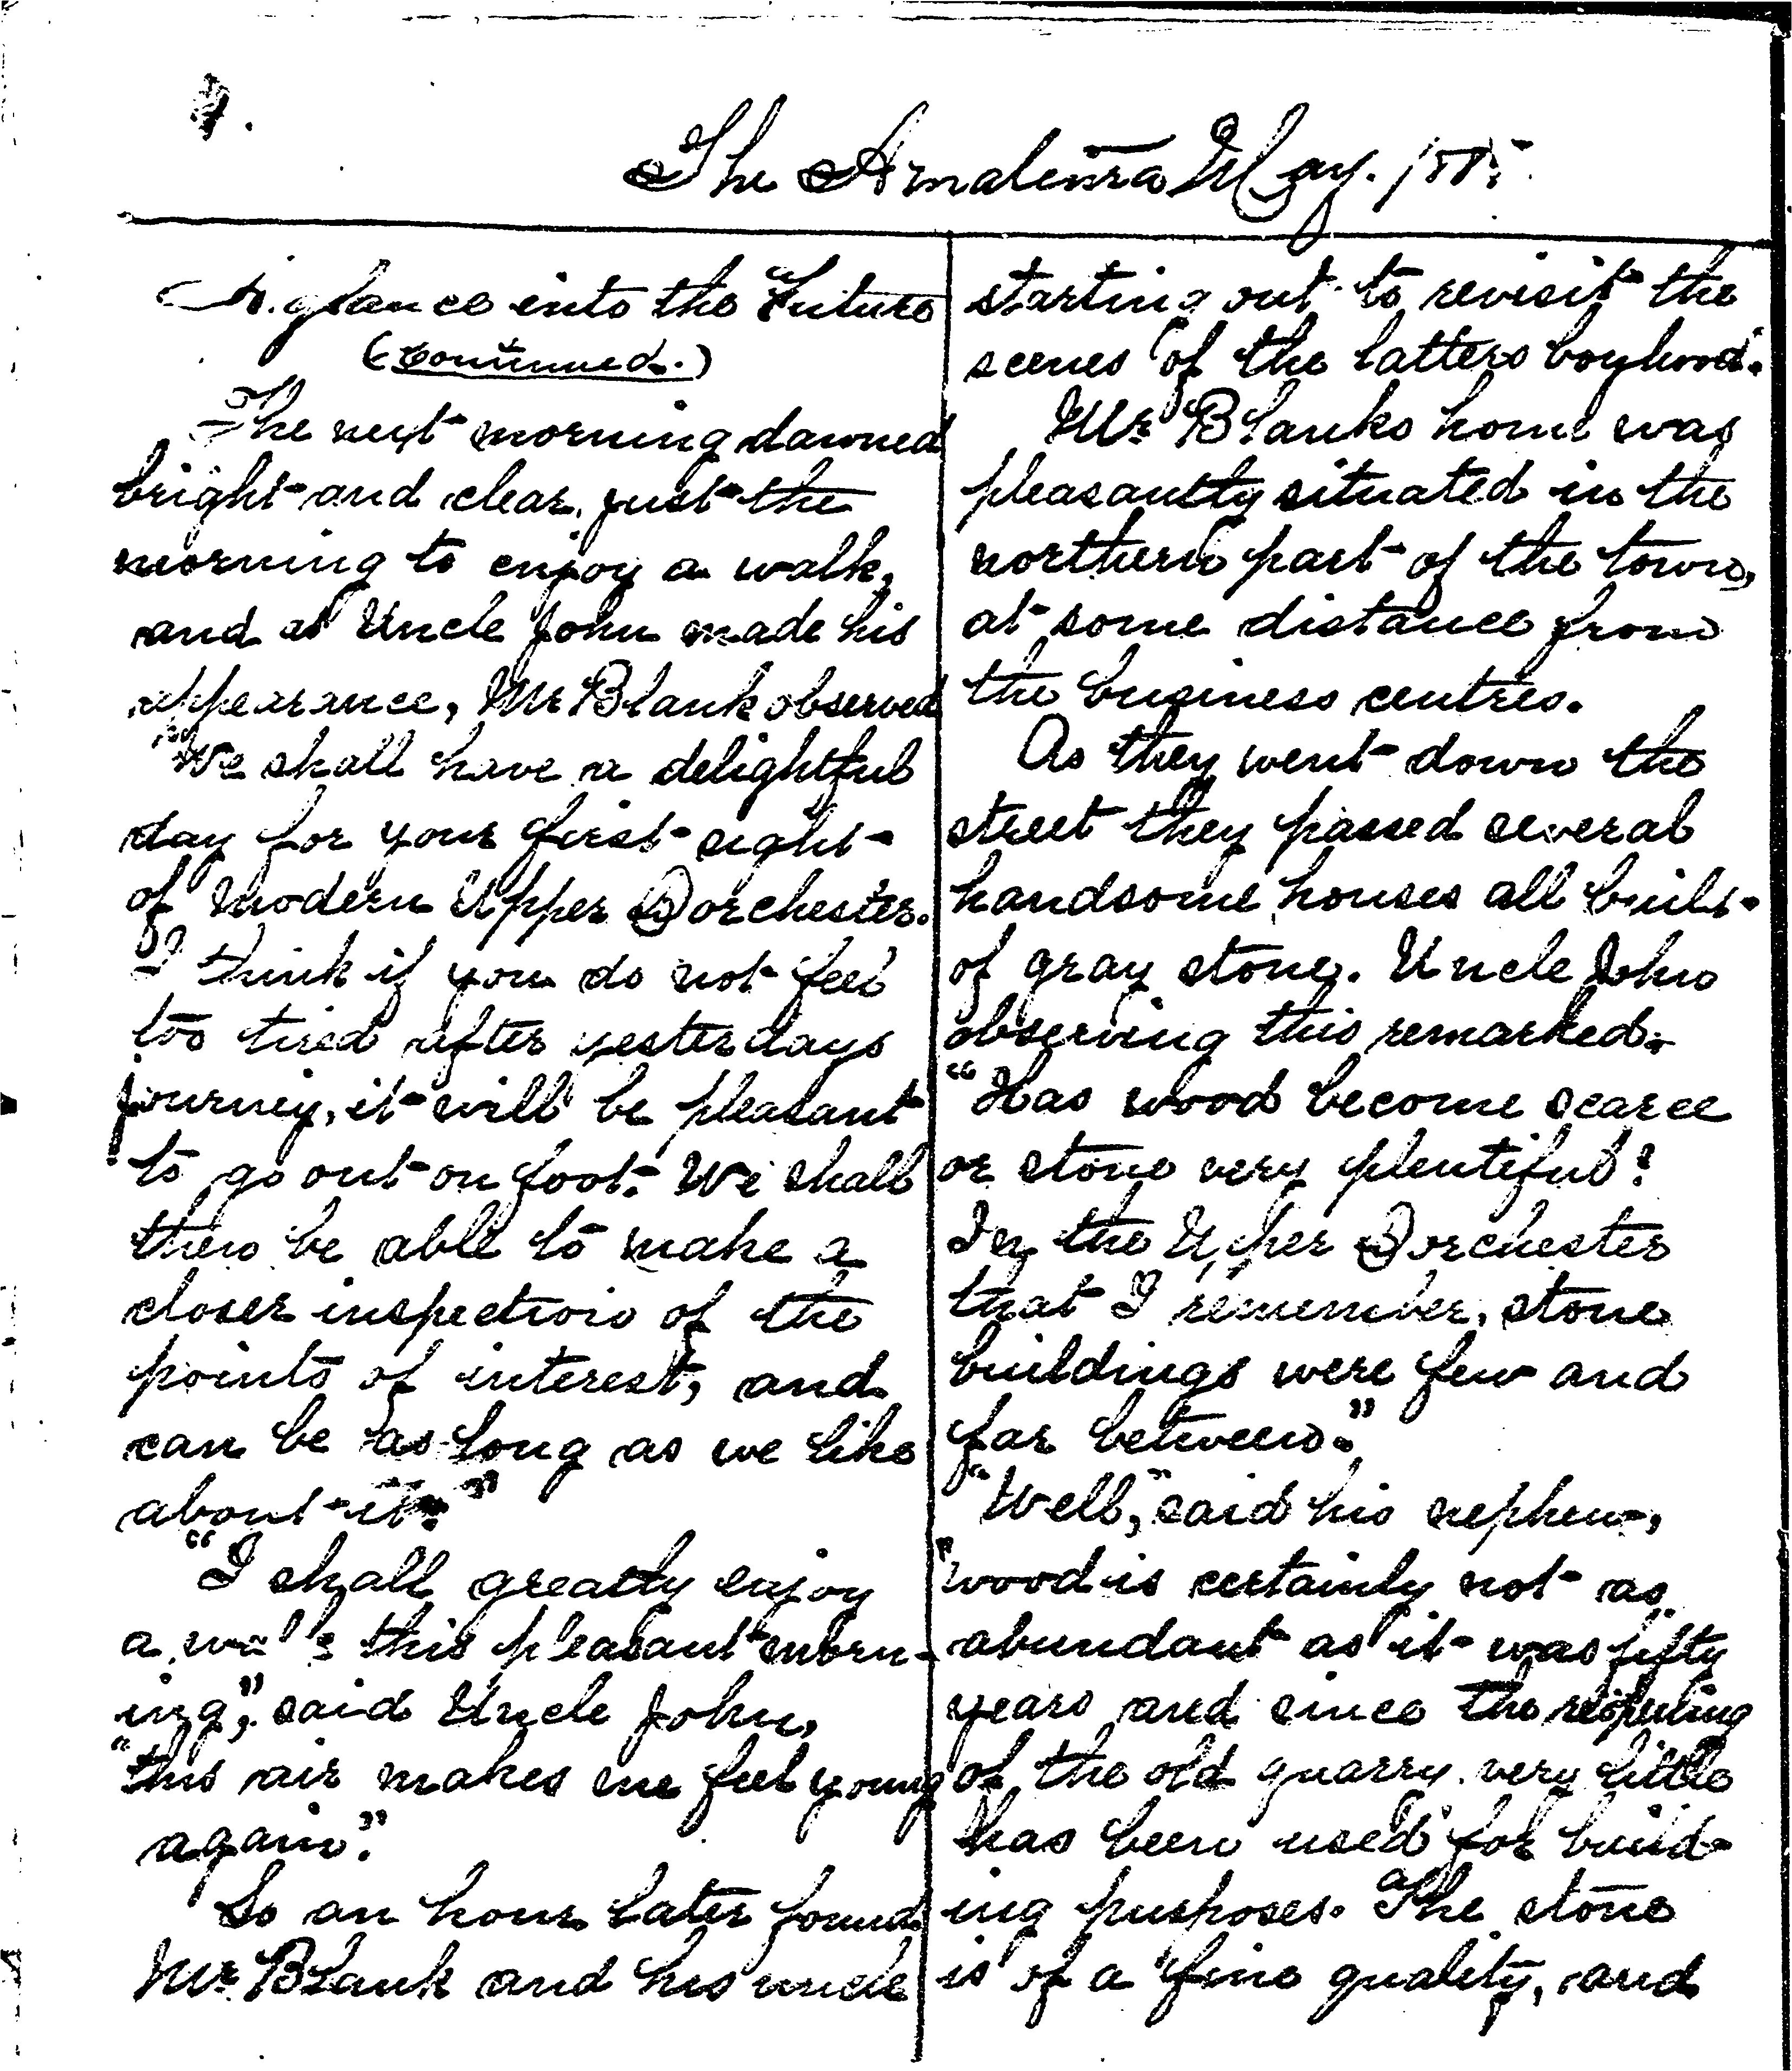 The May.
A glance into the Future
(Continued.)
The next morning dawned
bright and clear, just the
morning to enjoy a walk,
and as Uncle John made his
appearance, Mr Blank observed
"We shall have a delightful
day for your first sight
of modern Upper Dorchester.
I think if you do not feel
too tired after yesterdays
journey, it will be pleasant
to go out on foot. We shall
then be able to make a
closer inspection of the
points of interest, and
can be as long as we like
about it."
"I shall greatly enjoy
a this pleasant morn-
ing", said Uncle John,
"this air makes me feel young
again."
So an hour later found
Mr Blank and his uncle
starting out to revisit the
scenes of the latters boyhood.
Mr Blanks home was
pleasantly situated in the
northern part of the town,
at some distance from
the business centres.
As they went down the
street they passed several
handsome houses all built
of gray stone. Uncle John
observing this remarked:
"Has wood become scarce
or stone very plentiful?
In the Upper Dorchester
that I remember, stone
buildings were few and
far between."
"Well," said his nephew,
"wood is certainly not as
abundant as it was fifty
years and since the reopening
of the old quarry very little
has been used for build-
ing purposes. The stone
is of a fine quality, and